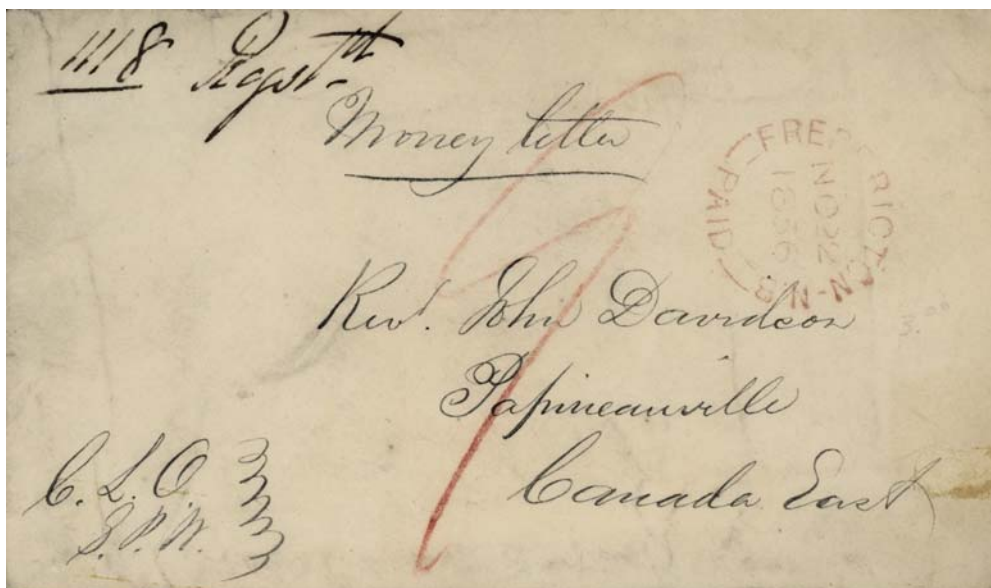 1118 Regist'd
Money letter
PAID FREDERICTON-N-B
NO 22
1856
Revd. John Davidson
Papineauville
Canada East
C. L. O.
S. P. W.